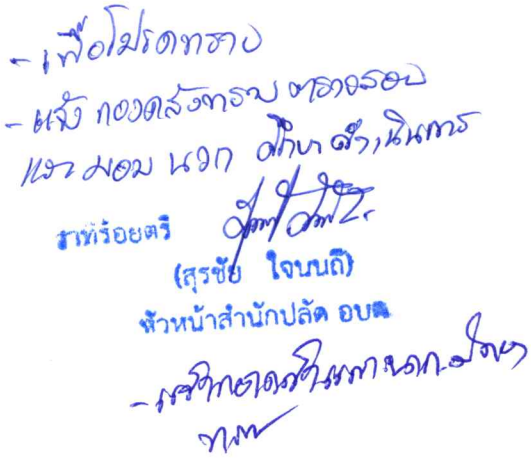 - เพื่อโปรดทราบ
- แจ้ง กองคลังทราบ ตรวจสอบ
และ มอบ นวก ศึกษา ดำเนินการ
ว่าที่ร้อยตรี
(สุรชัย ใจนนถี)
หัวหน้าสำนักปลัด อบต
- แจ้งกองคลัง
ทราบ